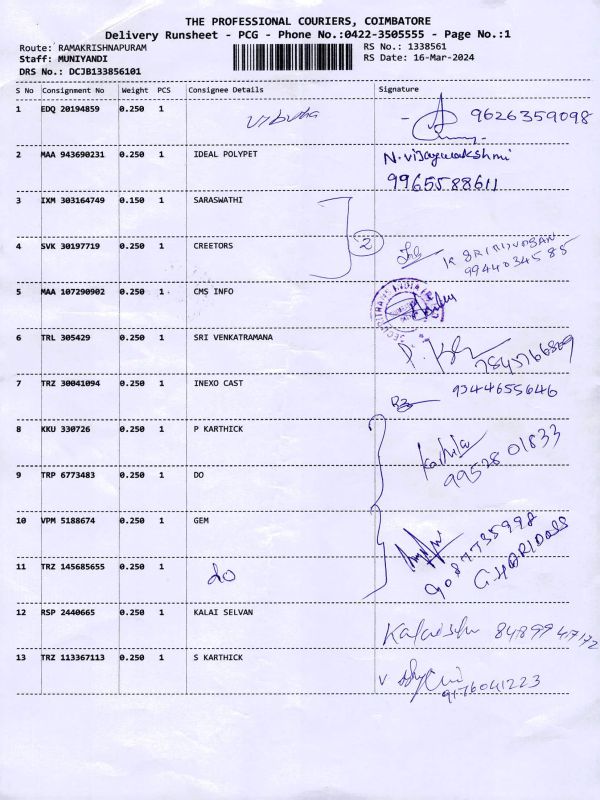 THE PROFESSIONAL COURIERS, COIMBATORE
Delivery Runsheet - PCG - Phone No.:0422-3505555 - Page No.:1
Route: RAMAKRISHNAPURAM RS No.: 1338561
Staff: MUNIYANDI RS Date: 16-Mar-2024
DRS No.: DCJB133856101
S No Consignment No Weight PCS Consignee Details Signature
1 EDQ 20194859 0.250 1 9626359098
2 MAA 943690231 0.250 1 IDEAL POLYPET N. vijayalakshmi
9965588611
3 IXM 303164749 0.150 1 SARASWATHI
4 SVK 30197719 0.250 1 CREETORS 2 K SRINIVASAN
9944034585
5 MAA 107290902 0.250 1 CMS INFO
6 TRL 305429 0.250 1 SRI VENKATRAMANA
7 TRZ 30041094 0.250 1 INEXO CAST 9344655646
8 KKU 330726 0.250 1 P KARTHICK
99528 01833
9 TRP 6773483 0.250 1 DO
10 VPM 5188674 0.250 1 GEM
9087735998
G. HARIDASS
11 TRZ 145685655 0.250 1 do
12 RSP 2440665 0.250 1 KALAI SELVAN
13 TRZ 113367113 0.250 1 S KARTHICK
9176041223